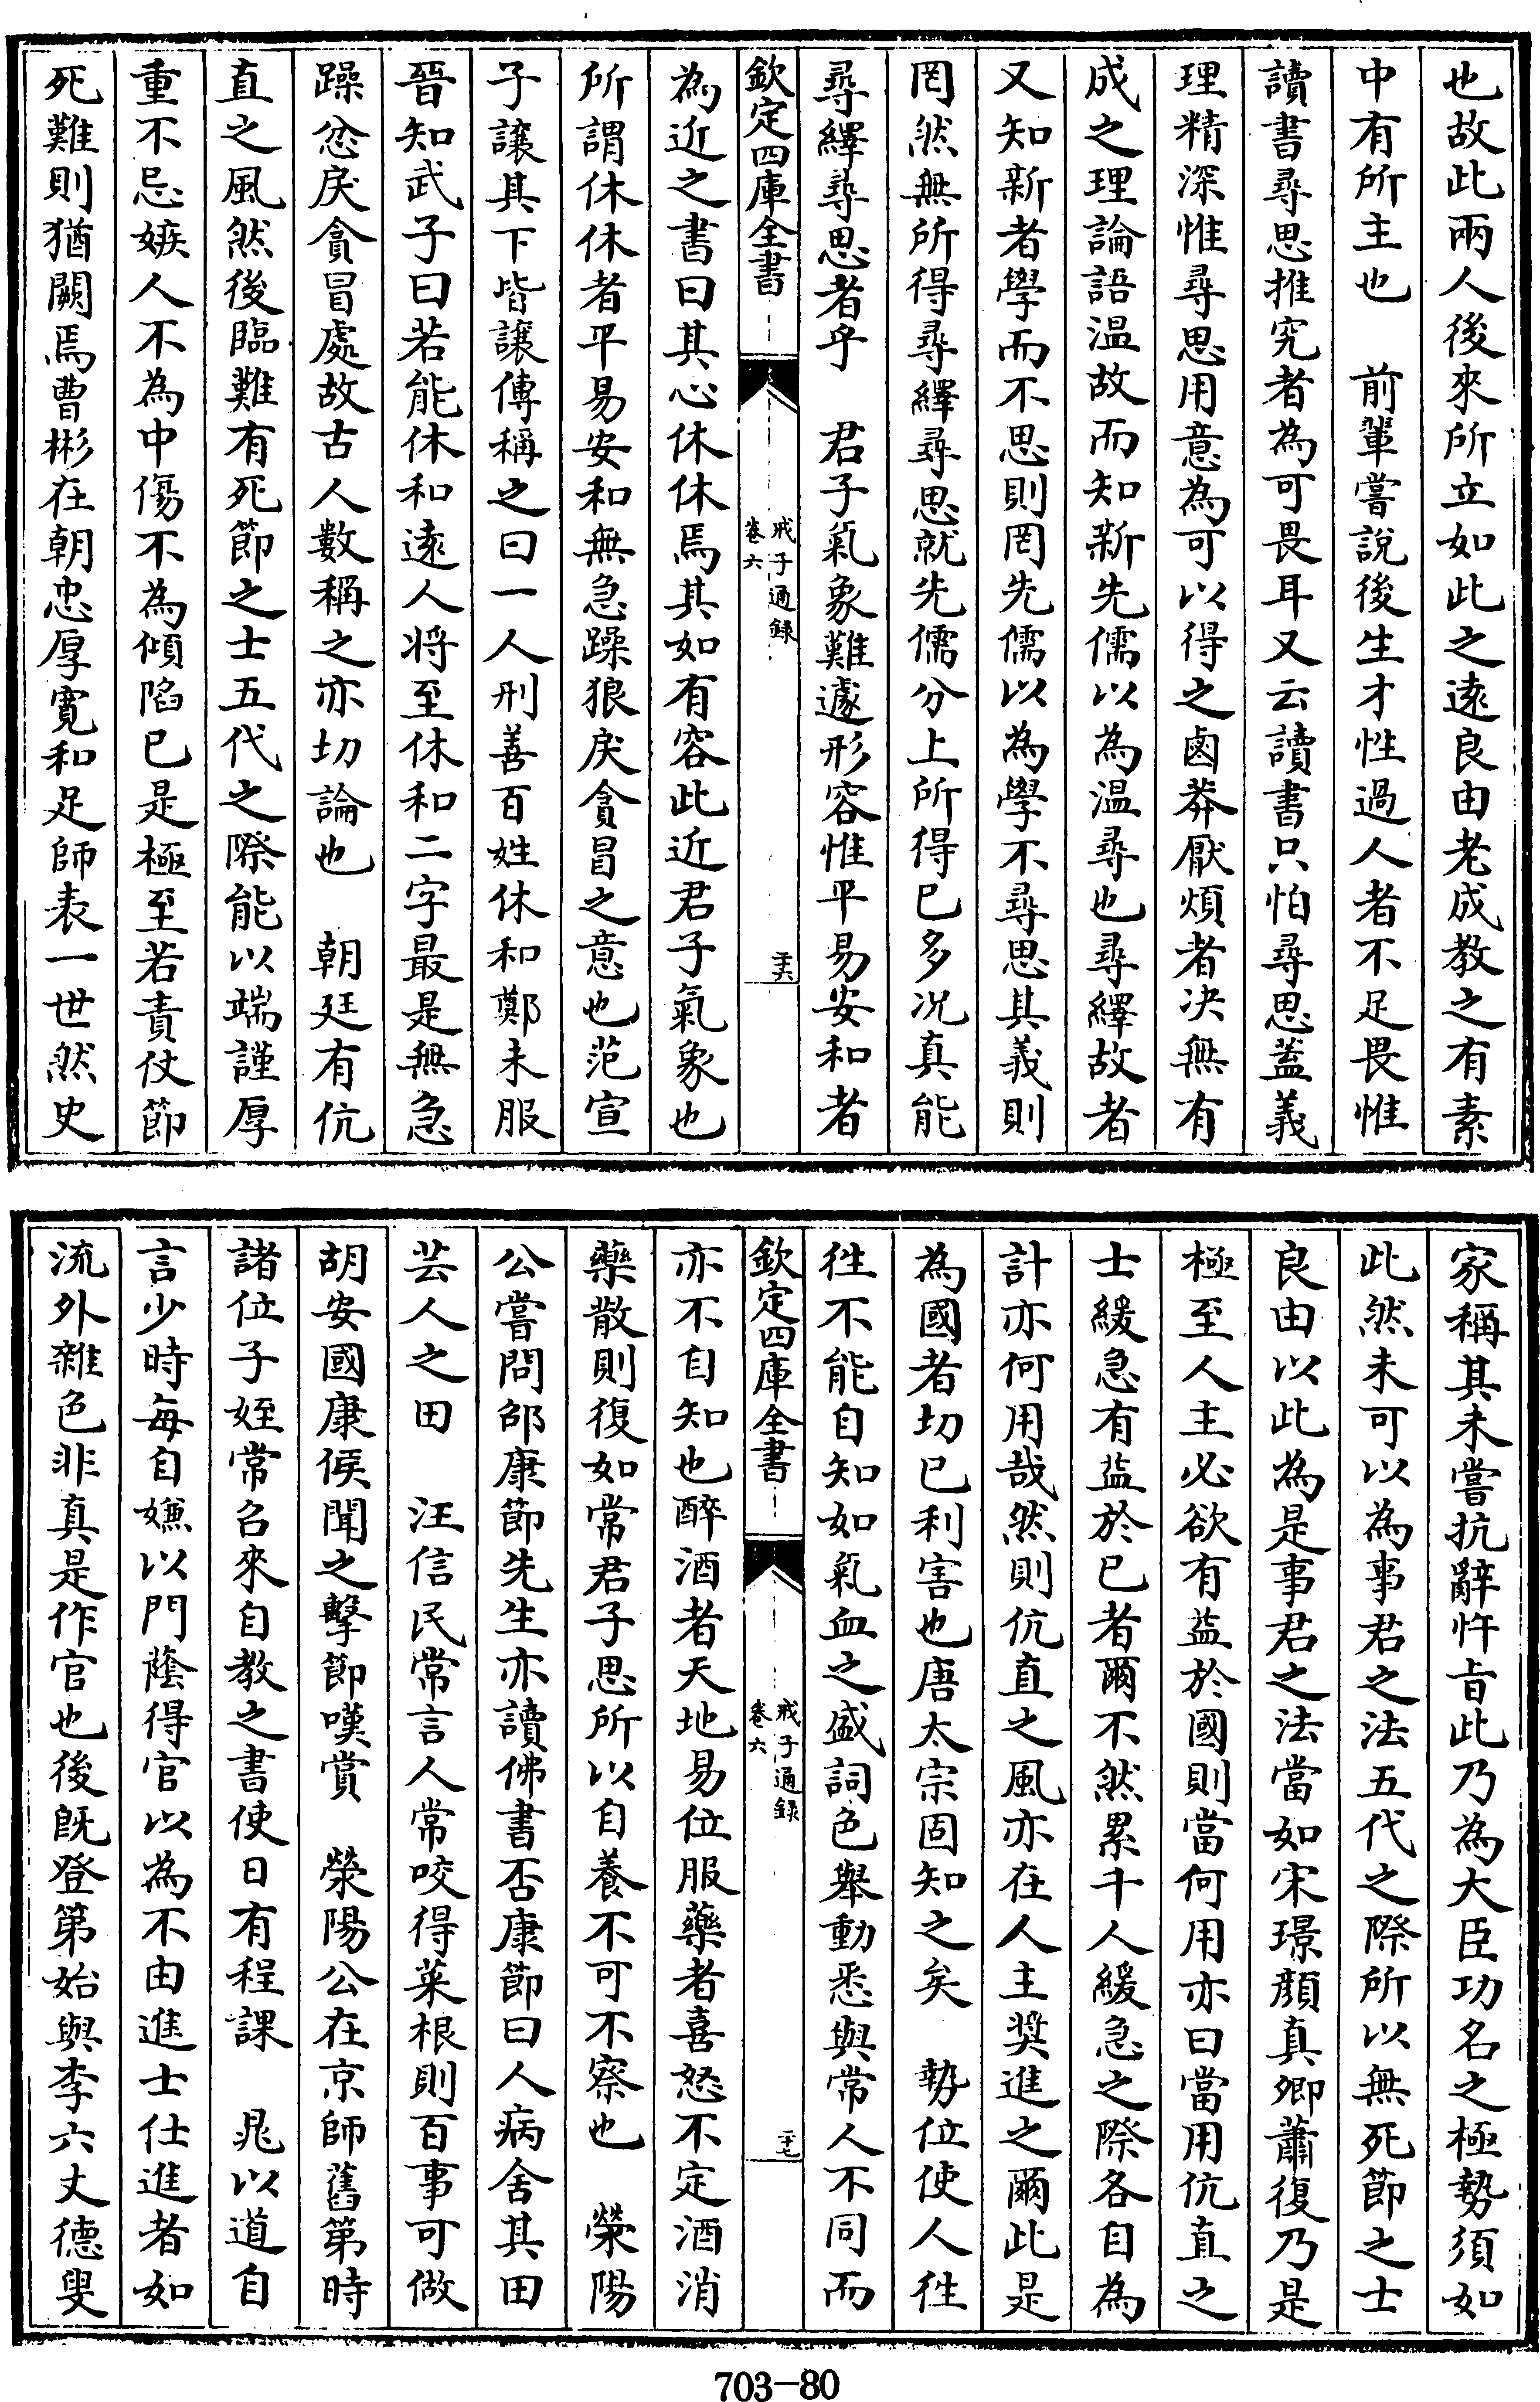 也故此兩人後來所立如此之遠良由老成教之有素
中有所主也　前輩嘗說後生才性過人者不足畏惟
讀書尋思推究者為可畏耳又云讀書只怕尋思蓋義
理精深惟尋思用意為可以得之鹵莽厭煩者决無有
成之理論語温故而知新先儒以為温尋也尋繹故者
又知新者學而不思則罔先儒以為學不尋思其義則
罔然無所得尋繹尋思就先儒分上所得已多况真能
尋繹尋思者乎　君子氣象難遽形容惟平易安和者
欽定四庫全書　戒子通録　卷六　三十六
為近之書曰其心休休焉其如有容此近君子氣象也
所謂休休者平易安和無急躁狼戾貪冒之意也范宣
子讓其下皆讓傳稱之曰一人刑善百姓休和鄭未服
晉知武子曰若能休和遠人将至休和二字最是無急
躁忿戾貪冒處故古人數稱之亦切論也　朝廷有伉
直之風然後臨難有死節之士五代之際能以端謹厚
重不忌嫉人不為中傷不為傾陷已是極至若責仗節
死難則猶闕焉曹彬在朝忠厚寛和足師表一世然史
家稱其未嘗抗辭忤旨此乃為大臣功名之極勢須如
此然未可以為事君之法五代之際所以無死節之士
良由以此為是事君之法當如宋璟顔真卿蕭復乃是
極至人主必欲有益於國則當何用亦曰當用伉直之
士緩急有益於已者爾不然累千人緩急之際各自為
計亦何用哉然則伉直之風亦在人主奬進之爾此是
為國者切已利害也唐太宗固知之矣　勢位使人徃
徃不能自知如氣血之盛詞色舉動悉與常人不同而
欽定四庫全書　戒子通録　卷六　三十七
亦不自知也醉酒者天地易位服藥者喜怒不定酒消
藥散則復如常君子思所以自養不可不察也　滎陽
公嘗問邵康節先生亦讀佛書否康節曰人病舍其田
芸人之田　汪信民常言人常咬得菜根則百事可做
胡安國康侯聞之擊節嘆賞　滎陽公在京師舊第時
諸位子姪常召來自教之書使日有程課　晁以道自
言少時每自嫌以門蔭得官以為不由進士仕進者如
流外雜色非真是作官也後既登第始與李六丈德叟
703-80